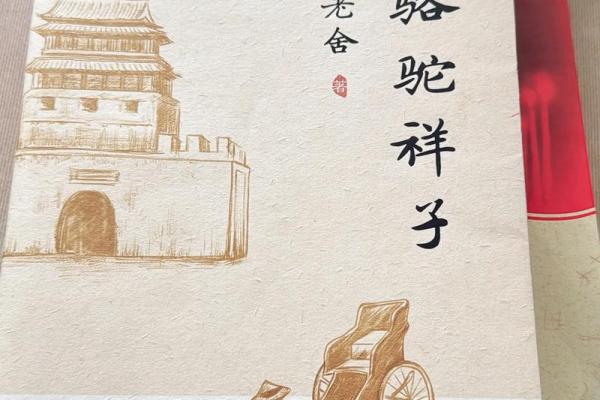 骆驼祥子
老舍
著